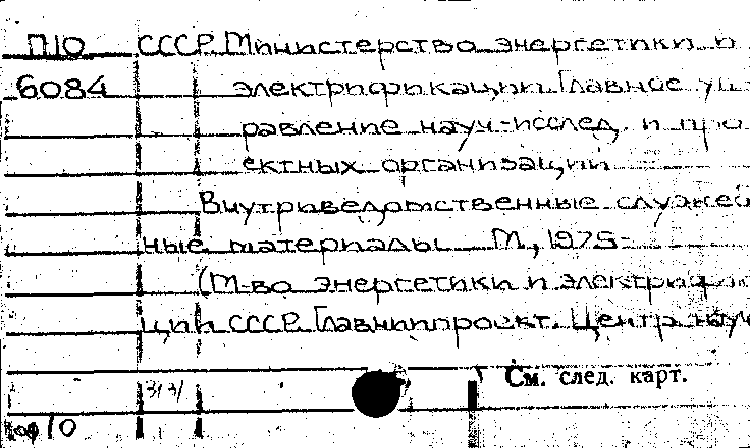 П10 СССР. Министерство энергетики и
6084 электрификации. Главное уп-
равление науч-исслед. и про
ектных организаций.
Внутриведомственные служеб
ные материалы. М., 1975-
(М-во энергетики и электрифик
ции СССР. Главниипроект. Центр науч
См. след. карт.
3/3/
10